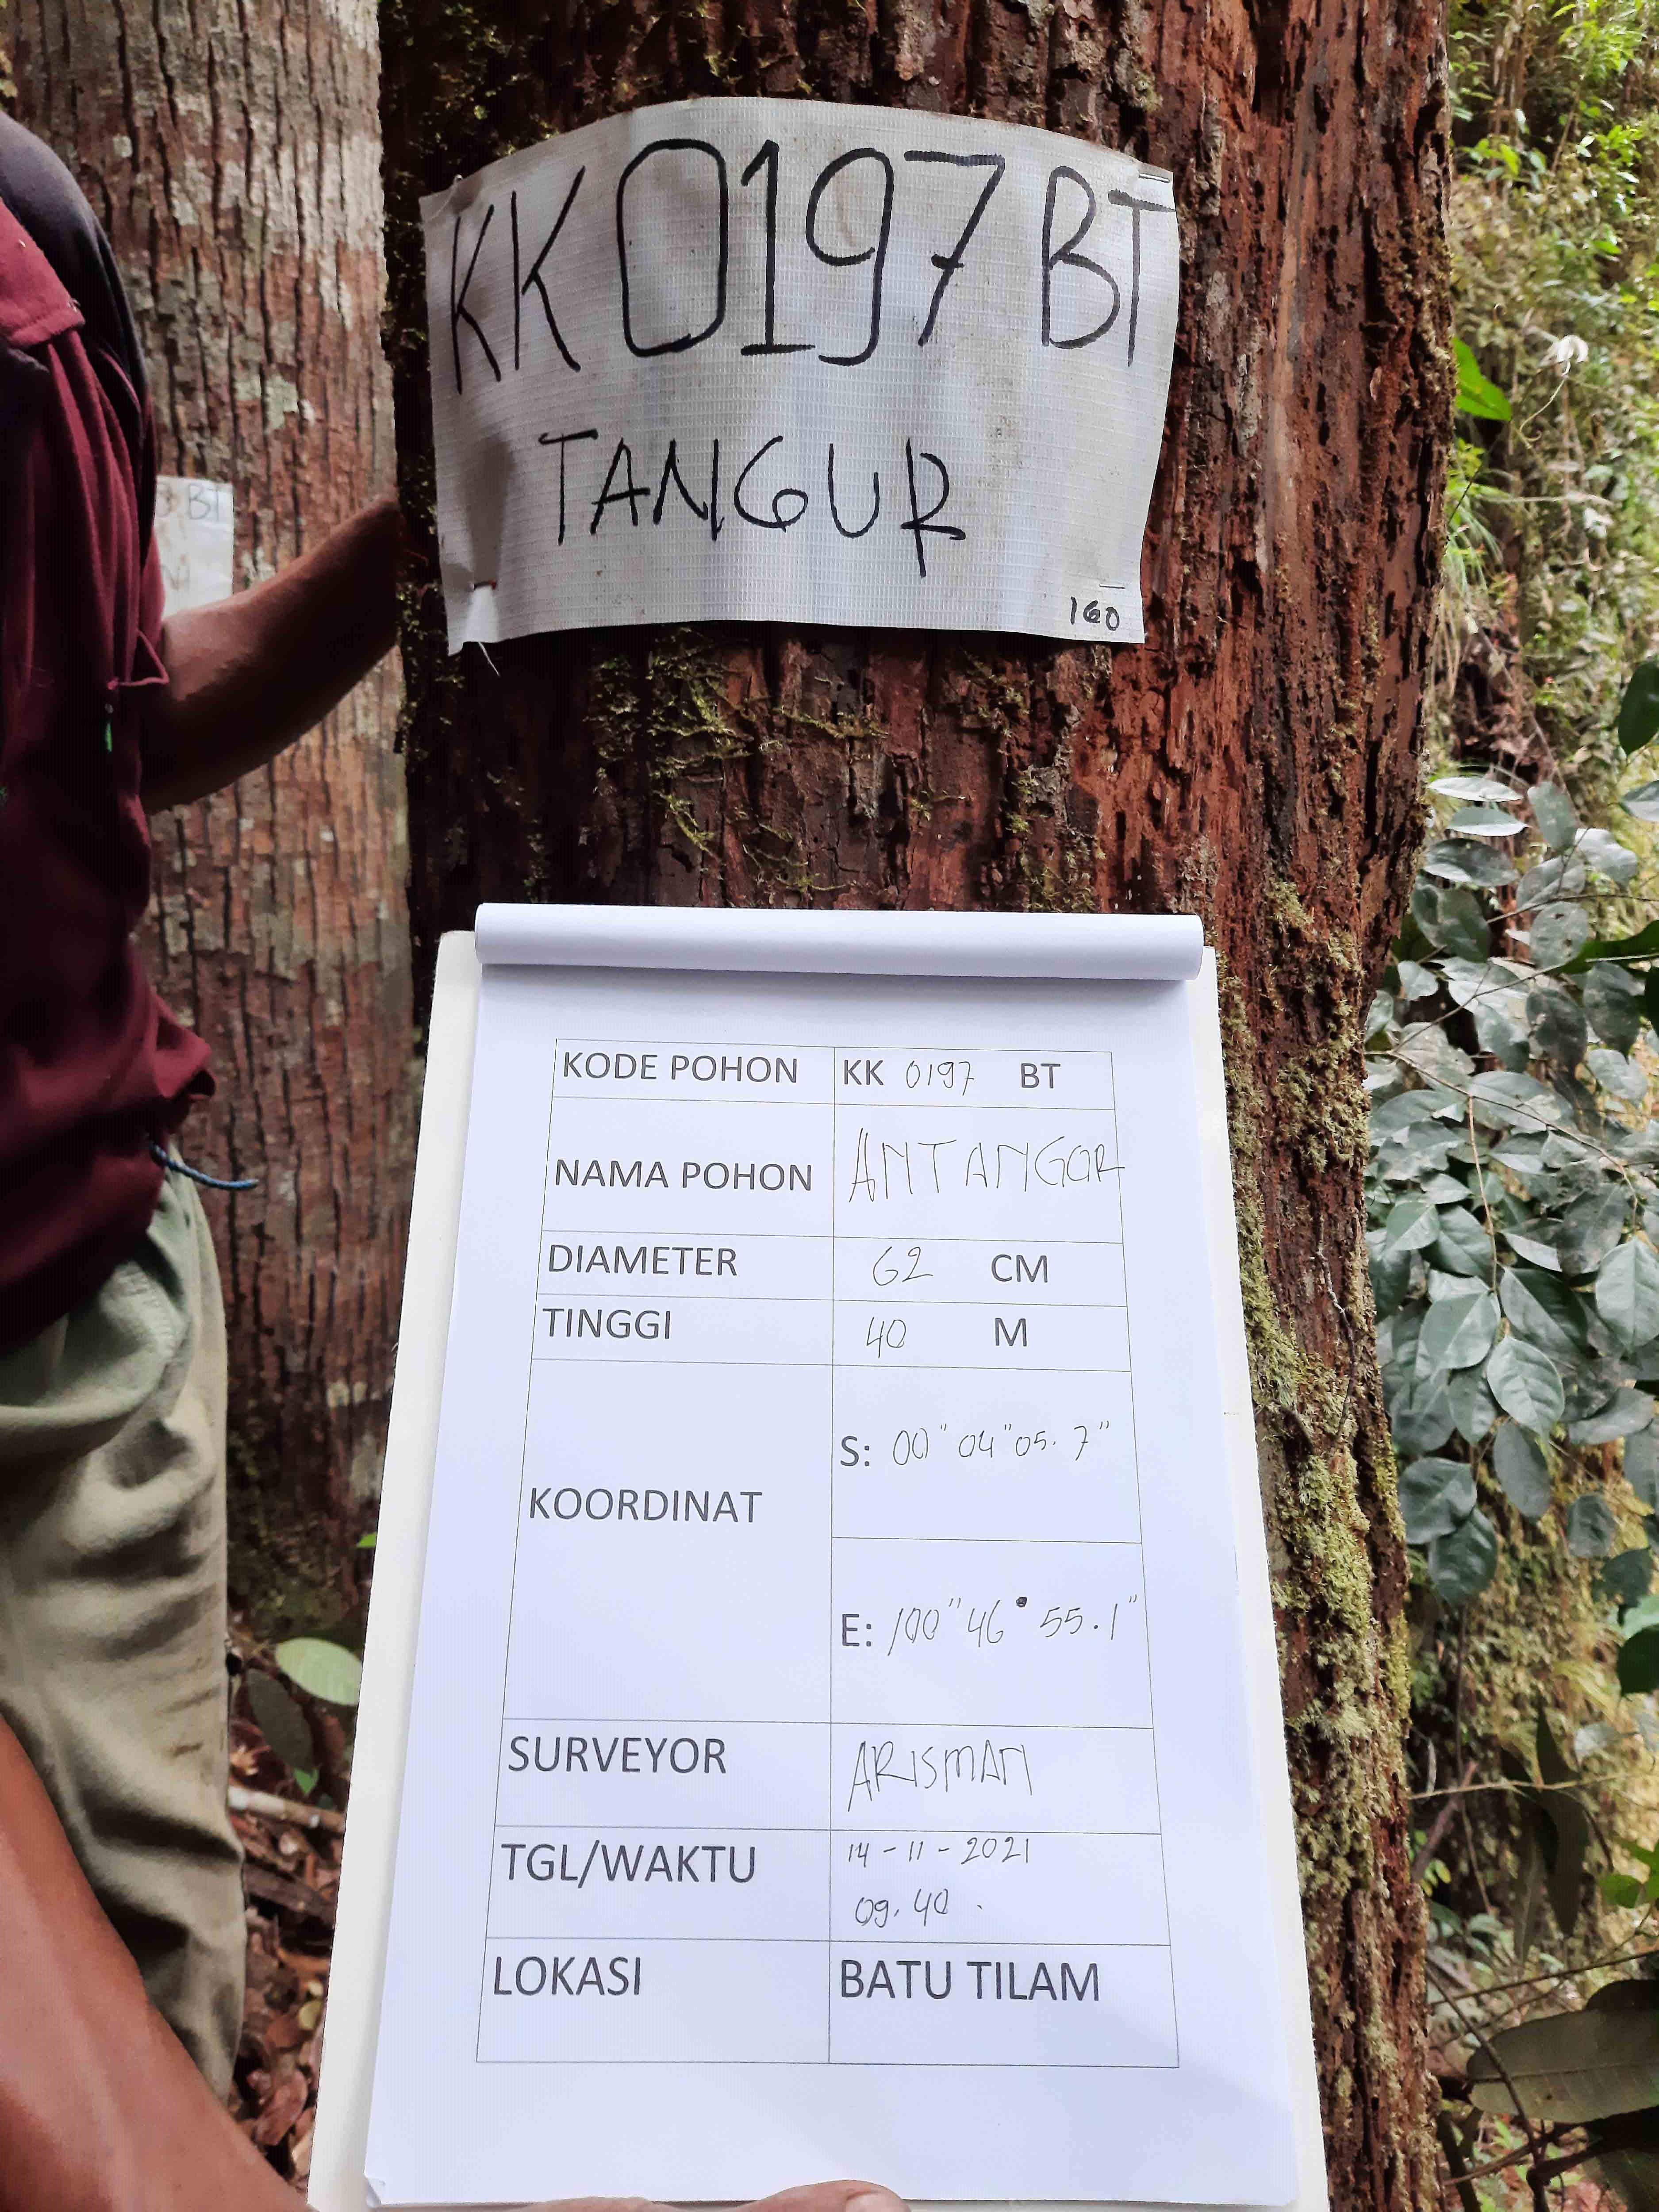 KK 0197 BT
TANGUR
160
BT
KODE POHON KK 0197 BT
NAMA POHON ANTANGOR
DIAMETER 62 CM
TINGGI 40 M
KOORDINAT
S: 00" 04" 05.7"
E: 100" 46° 55.1"
SURVEYOR ARISMAN
TGL/WAKTU 14-11-2021
09.40.
LOKASI BATU TILAM